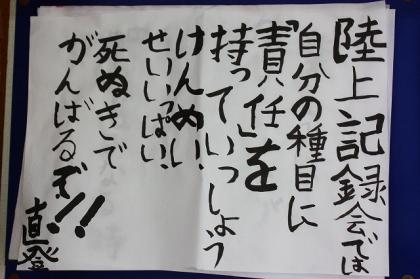 陸上記録会では
「自分の種目に
「責任」を
持っていっしょう
けんめい、
せいいっぱい、
死ぬきで
がんばるぞ!!
直登